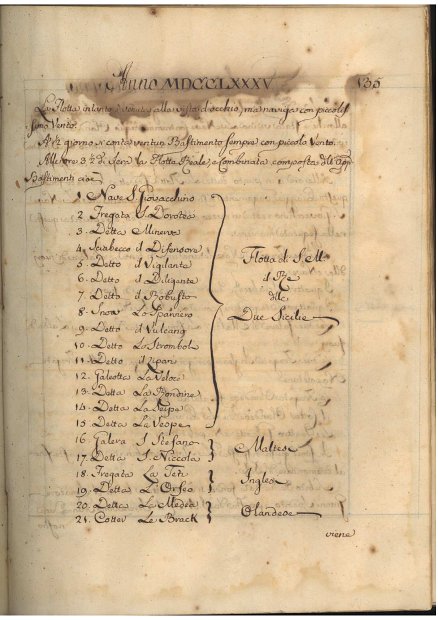 Anno MDCCLXXXV 135
La Flotta intanto alla vista d'occhio, ma naviga con piccolis
simo Vento.
A giorno si conta ventun Bastimento sempre con piccolo Vento.
Alle ore 3½ di Sera la Flotta Reale, e combinata composta dell
Bastimenti cioè
1. Nave S. Gioacchino
2. Fregata S Dorotea
3. Detta Minerva
4. Sciabecco il Difensore
5. Detto il Vigilante
6. Detto il Diligente
7. Detto il Robusto
8. Snow Lo Sparviero
9. Detto il Vulcano
10. Detto Lo Strombol
11. Detto il Lipari
12. Galeotta La Veloce
13. Detta La Rondine
14. Detta La
15. Detta La Vespe
Flotta di S. M.
il Re
delle
Due Sicilie
16. Galera S. Stefano
17. Detta S. Niccola
Maltese
18. Fregata La Teti
19. Detta L'Orfeo
Inglese
20. Detta La Medea
21. Cotter Le Brack
Olandese
viene